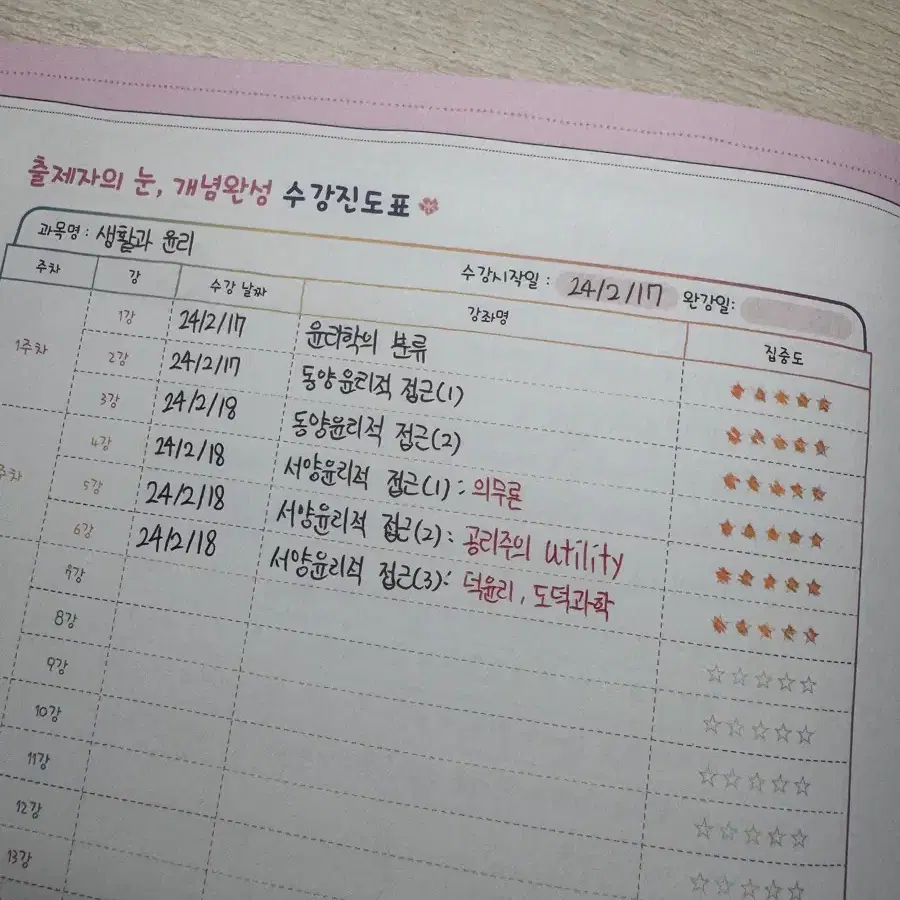 출제자의 눈, 개념완성 수강진도표
과목명 : 생활과 윤리 수강시작일 : 24/2/17 완강일:
주차 강 수강 날짜 강좌명 집중도
1주차 1강 24/2/17 윤리학의 분류
2강 24/2/17 동양윤리적 접근(1)
3강 24/2/18 동양윤리적 접근(2)
4강 24/2/18 서양윤리적 접근(1) : 의무론
주차 5강 24/2/18 서양윤리적 접근(2) : 공리주의 utility
6강 24/2/18 서양윤리적 접근(3): 덕윤리, 도덕과학
8강
9강
10강
11강
12강
13강